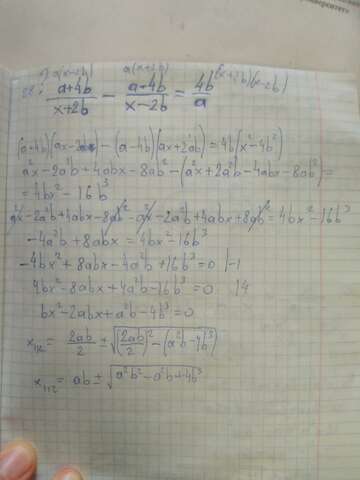 a(x-2b) a(x+2b) (x+2b)(x-2b)
28. (a+4b)/(x+2b) - (a-4b)/(x-2b) = 4b/a
(a+4b)(ax-2ab) - (a-4b)(ax+2ab) = 4b(x²-4b²)
a²x-2a²b+4abx-8ab² - (a²x+2a²b-4abx-8ab²) =
= 4bx² - 16b³
a²x-2a²b+4abx-8ab² - a²x-2a²b+4abx+8ab² = 4bx²-16b³
-4a²b+8abx = 4bx²-16b³
-4bx²+8abx-4a²b+16b³=0 |-1
4bx²-8abx+4a²b-16b³=0 |4
bx²-2abx+a²b-4b³=0
x₁,₂ = 2ab/2 ± √((2ab/2)² - (a²b-4b³))
x₁,₂ = ab ± √(a²b²-a²b+4b³)